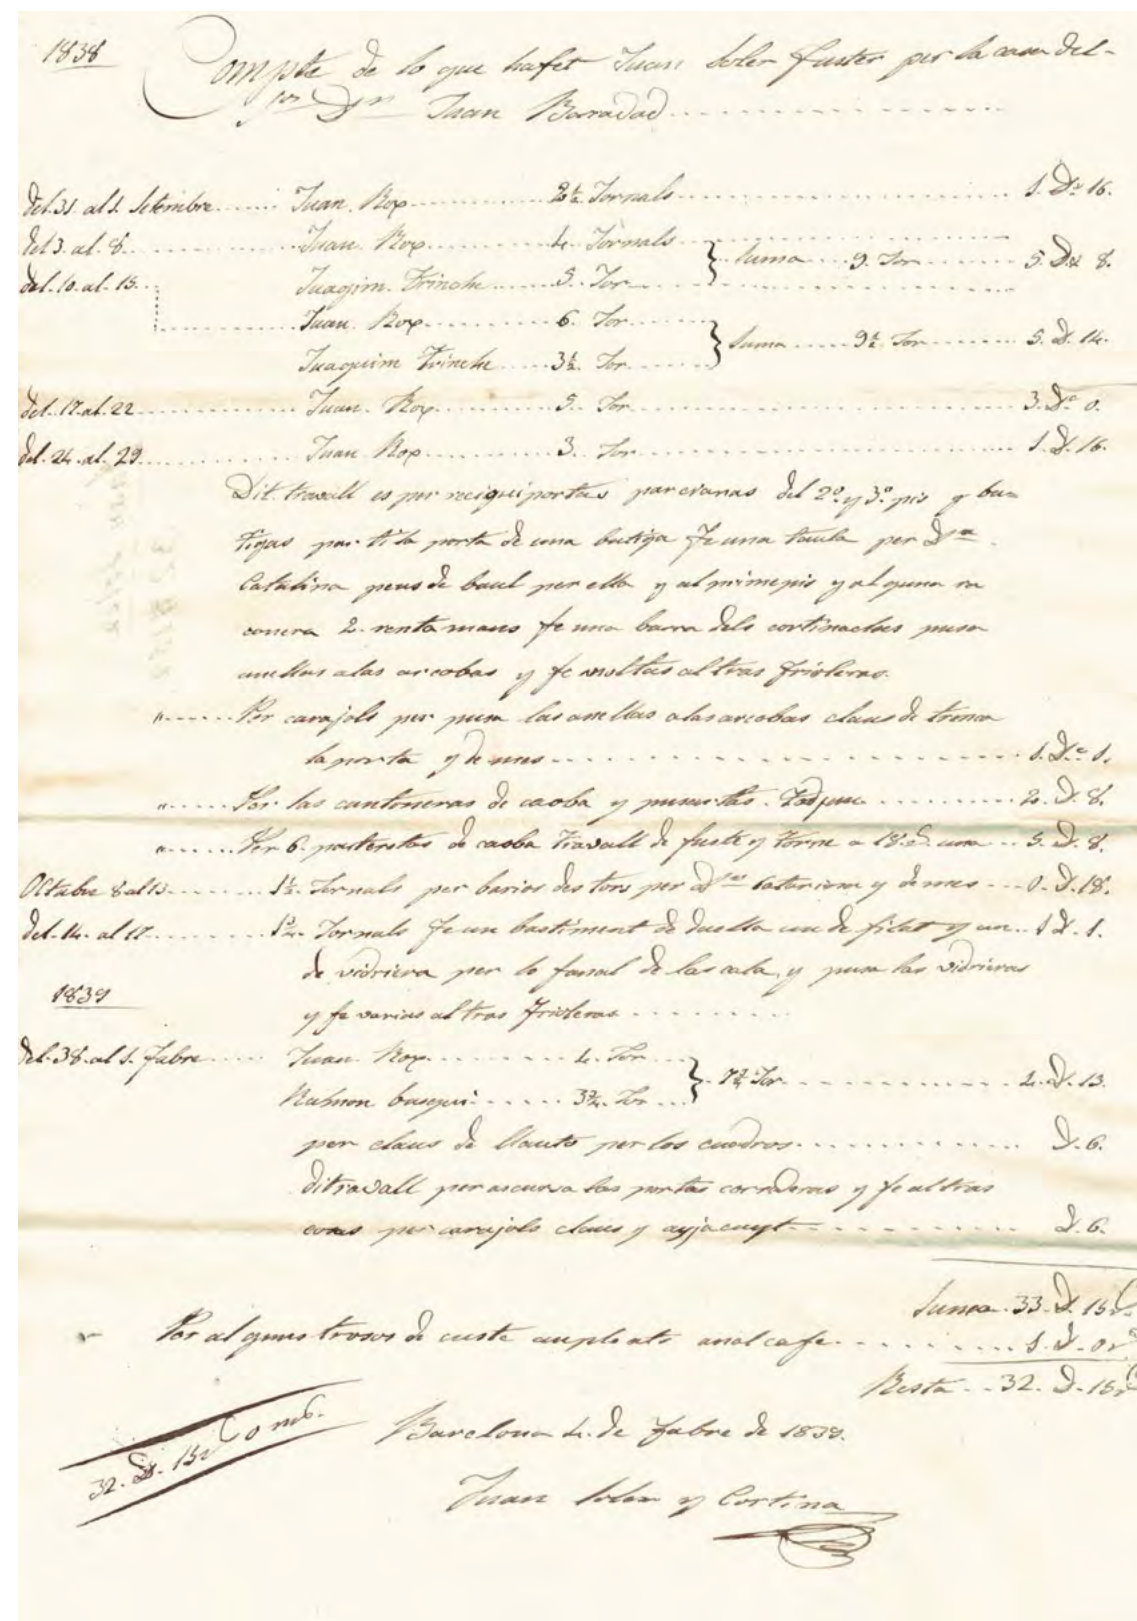 1838
Compte de lo que hafet Juan Soler fuster per la casa del
Sor Dn Juan Baradad
del 31 al 1 Setembre Juan Rox 2½ Jornals 1. Ds 16.
del 3. al 8. Juan Rox 4. Jornals
Juaqim Trinche 5. Jor Suma 9. Jor 5. Ds 8.
del 10. al 15. Juan Rox 6. Jor
Juaquim Trinche 3½ Jor Suma 9½ Jor 5. D. 14.
del 17. al 22 Juan Rox 5. Jor 3. Ds 0.
del 24. al 29 Juan Rox 3. Jor 1. D. 16.
Dit travall es per portas parcianas del 2º y 3º pis y bu=
tigas la porta de una butiga fe una taula per Da
Catalina peus de baul per ella y al primepis y alguna ra
conera 2. renta mans fe una barra dels cortinachas pusa
anellas alas arcobas y fe moltas altras frioleras.
" Per carajols per pusa las anellas alas arcobas claus de trenca
la porta y demes 1. Ds 1.
" Per las cantoneras de caoba y 2. D. 8.
" Per 6. de caoba travall de fuste y torne a 18. una 5. D. 8.
Octubre 8 al 13 1½ Jornals per barios per Da y demes 0. D. 18.
del 14. al 17 1¾ Jornals fe un bastiment de duella un de filat y un 1 D. 1.
de vidriera per lo fanal de las cala, y pusa las vidrieras
1839
y fe varias altras frioleras
del 38 al 1. Fabre Juan Rox 4. Jor
Rahmon 3¾. Jor 7¾ Jor 4. D. 13.
per claus de llauto per los cuadros D. 6.
ditravall per ascursa las portas correderas y fe altras
cosas per carajols claus y D. 6.
Suma 33. D. 15
Per alguns trosos de 1. D. 0
Resta 32. D. 15
32. Ds. 15
Barcelona 4. de Fabre de 1839.
Juan Soler y Cortina